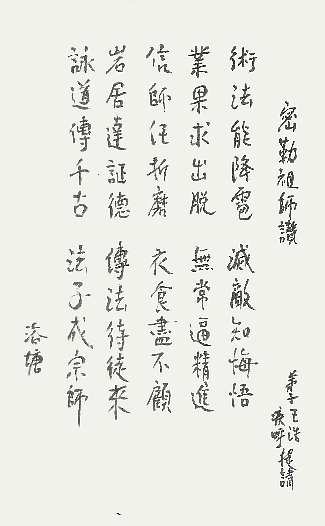 密勒祖師讚
弟子王浩
提請
術法能降雹 滅敵知悔悟
業果求出脫 無常逼精進
信師任折磨 衣食盡不顧
岩居達証德 傳法待徒來
詠道傳千古 法子成宗師
塘